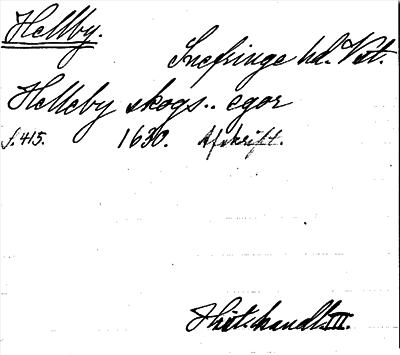 Hellby.
Snefringe hd. Vst.
Helleby skogs.. egor
f. 415. 1630. Afskrift.
Hist. handl. III.